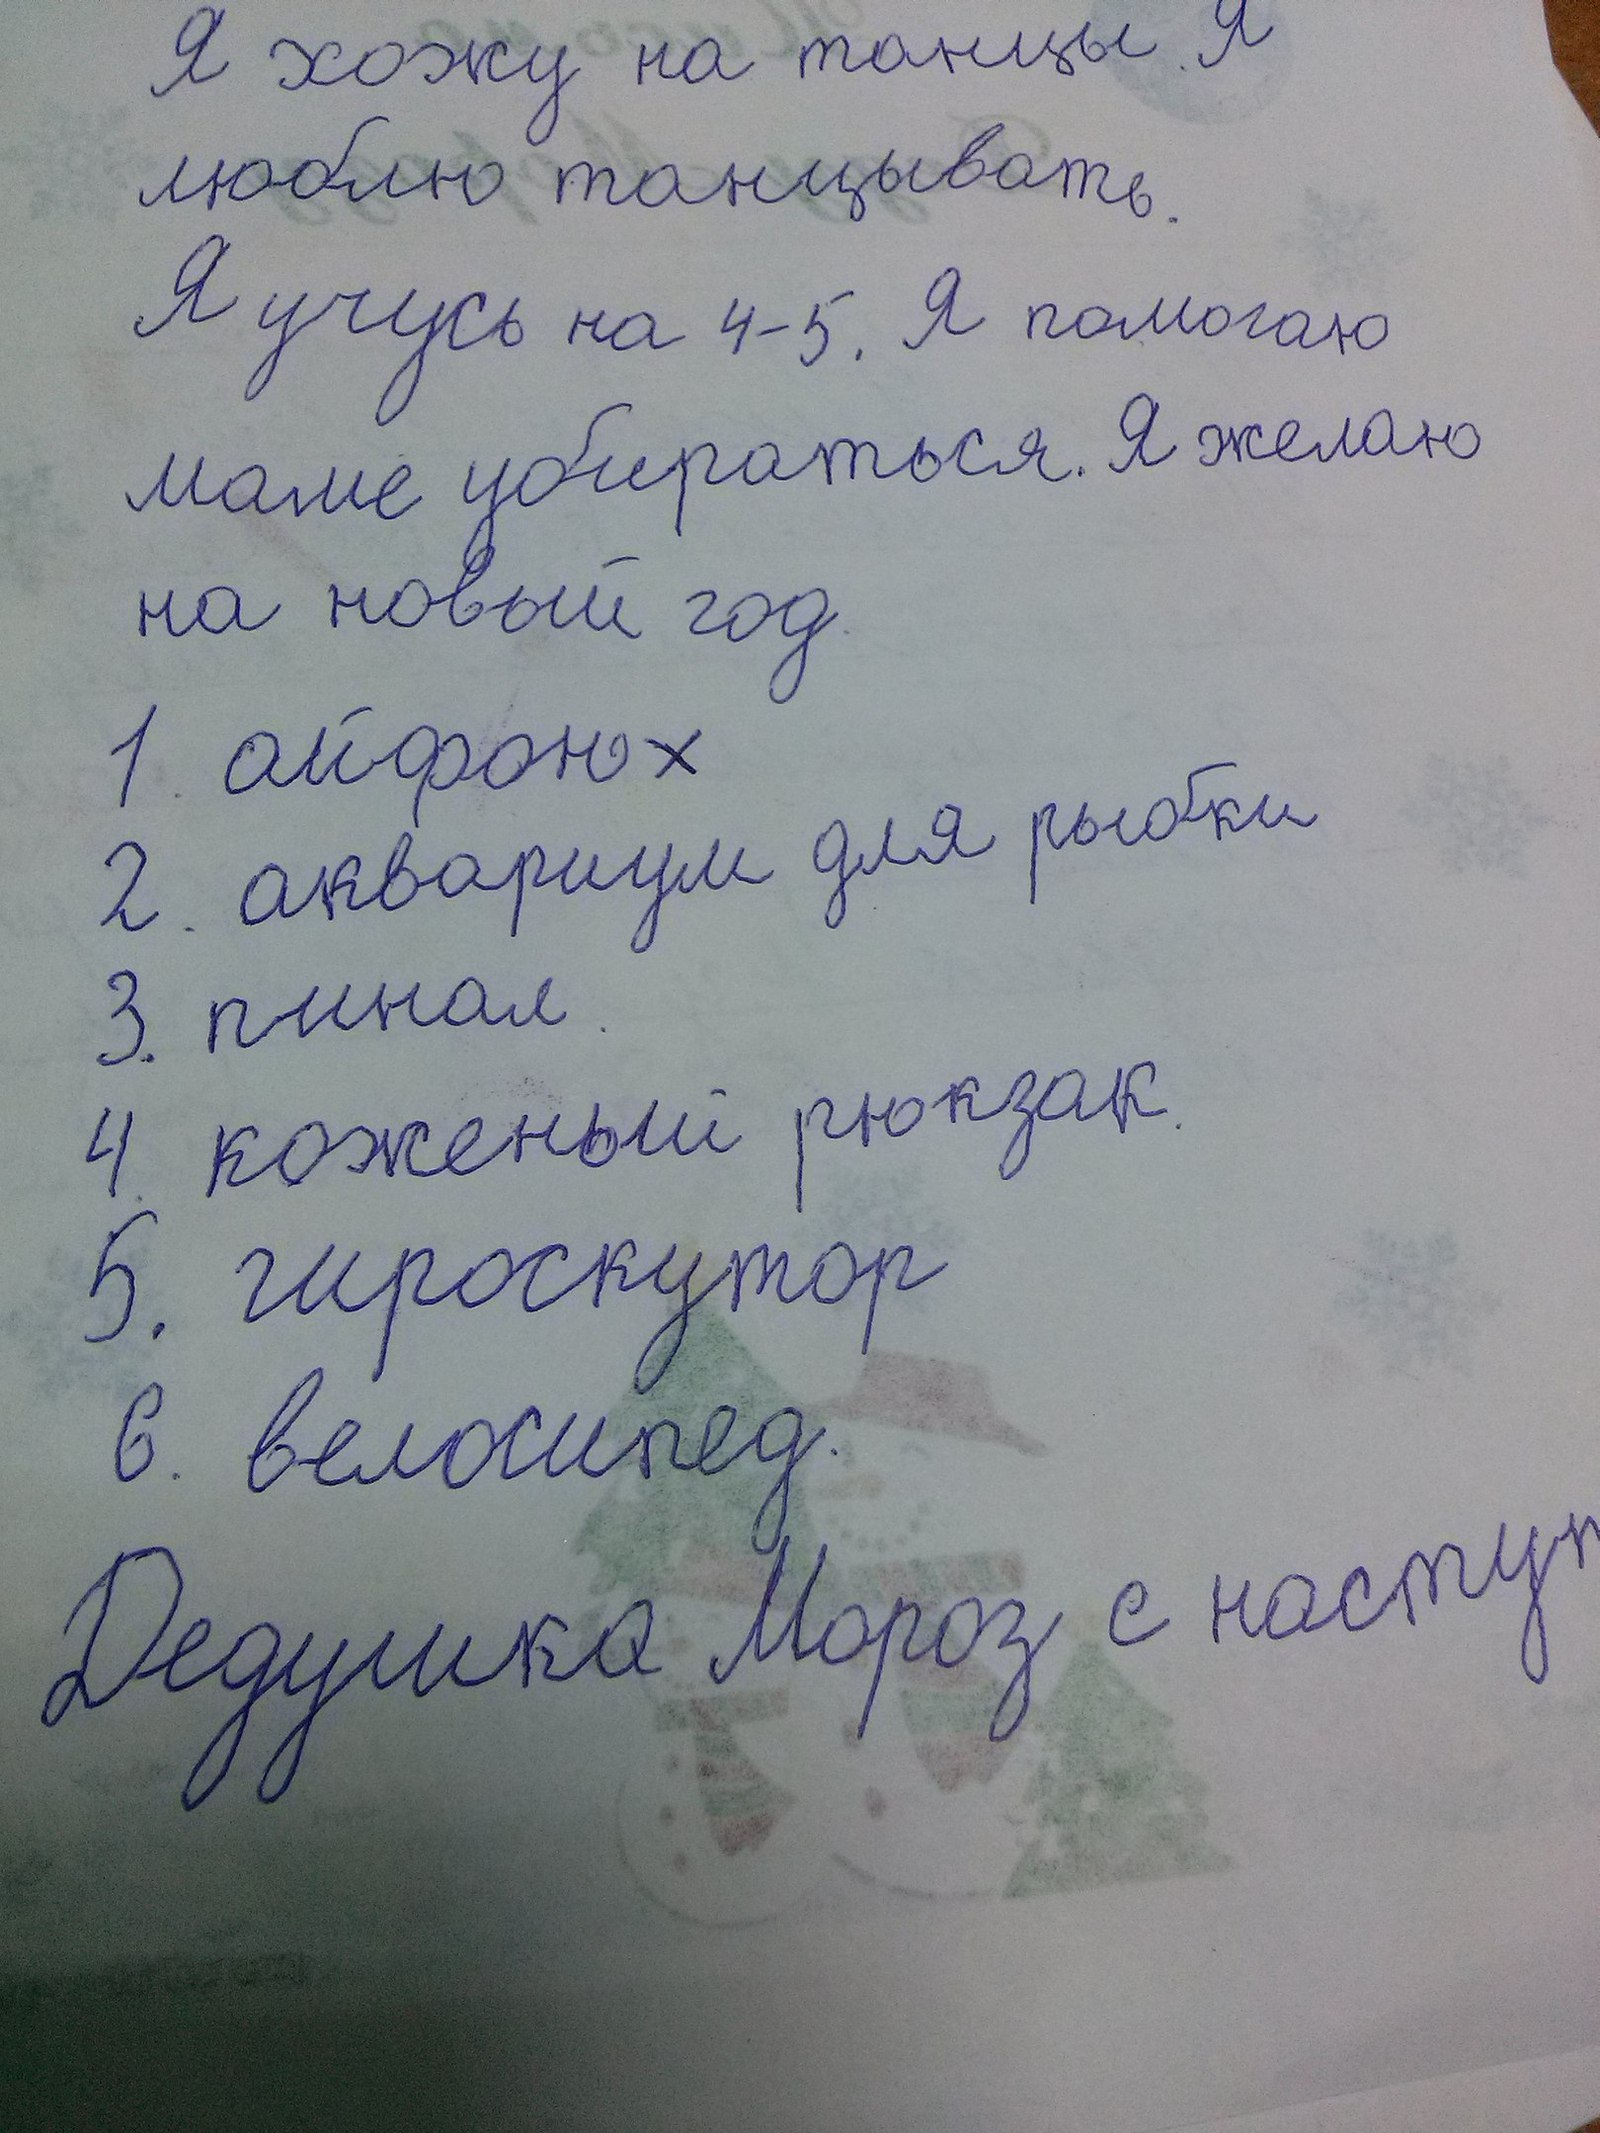 Я хожу на танцы. Я
люблю танцывать.
Я учусь на 4-5. Я помогаю
маме убираться. Я желаю
на новый год.
1. айфон х
2. аквариум для рыбки
3. пинал.
4. коженый рюкзак.
5. гироскутор
6. велосипед.
Дедушка Мороз с наступ